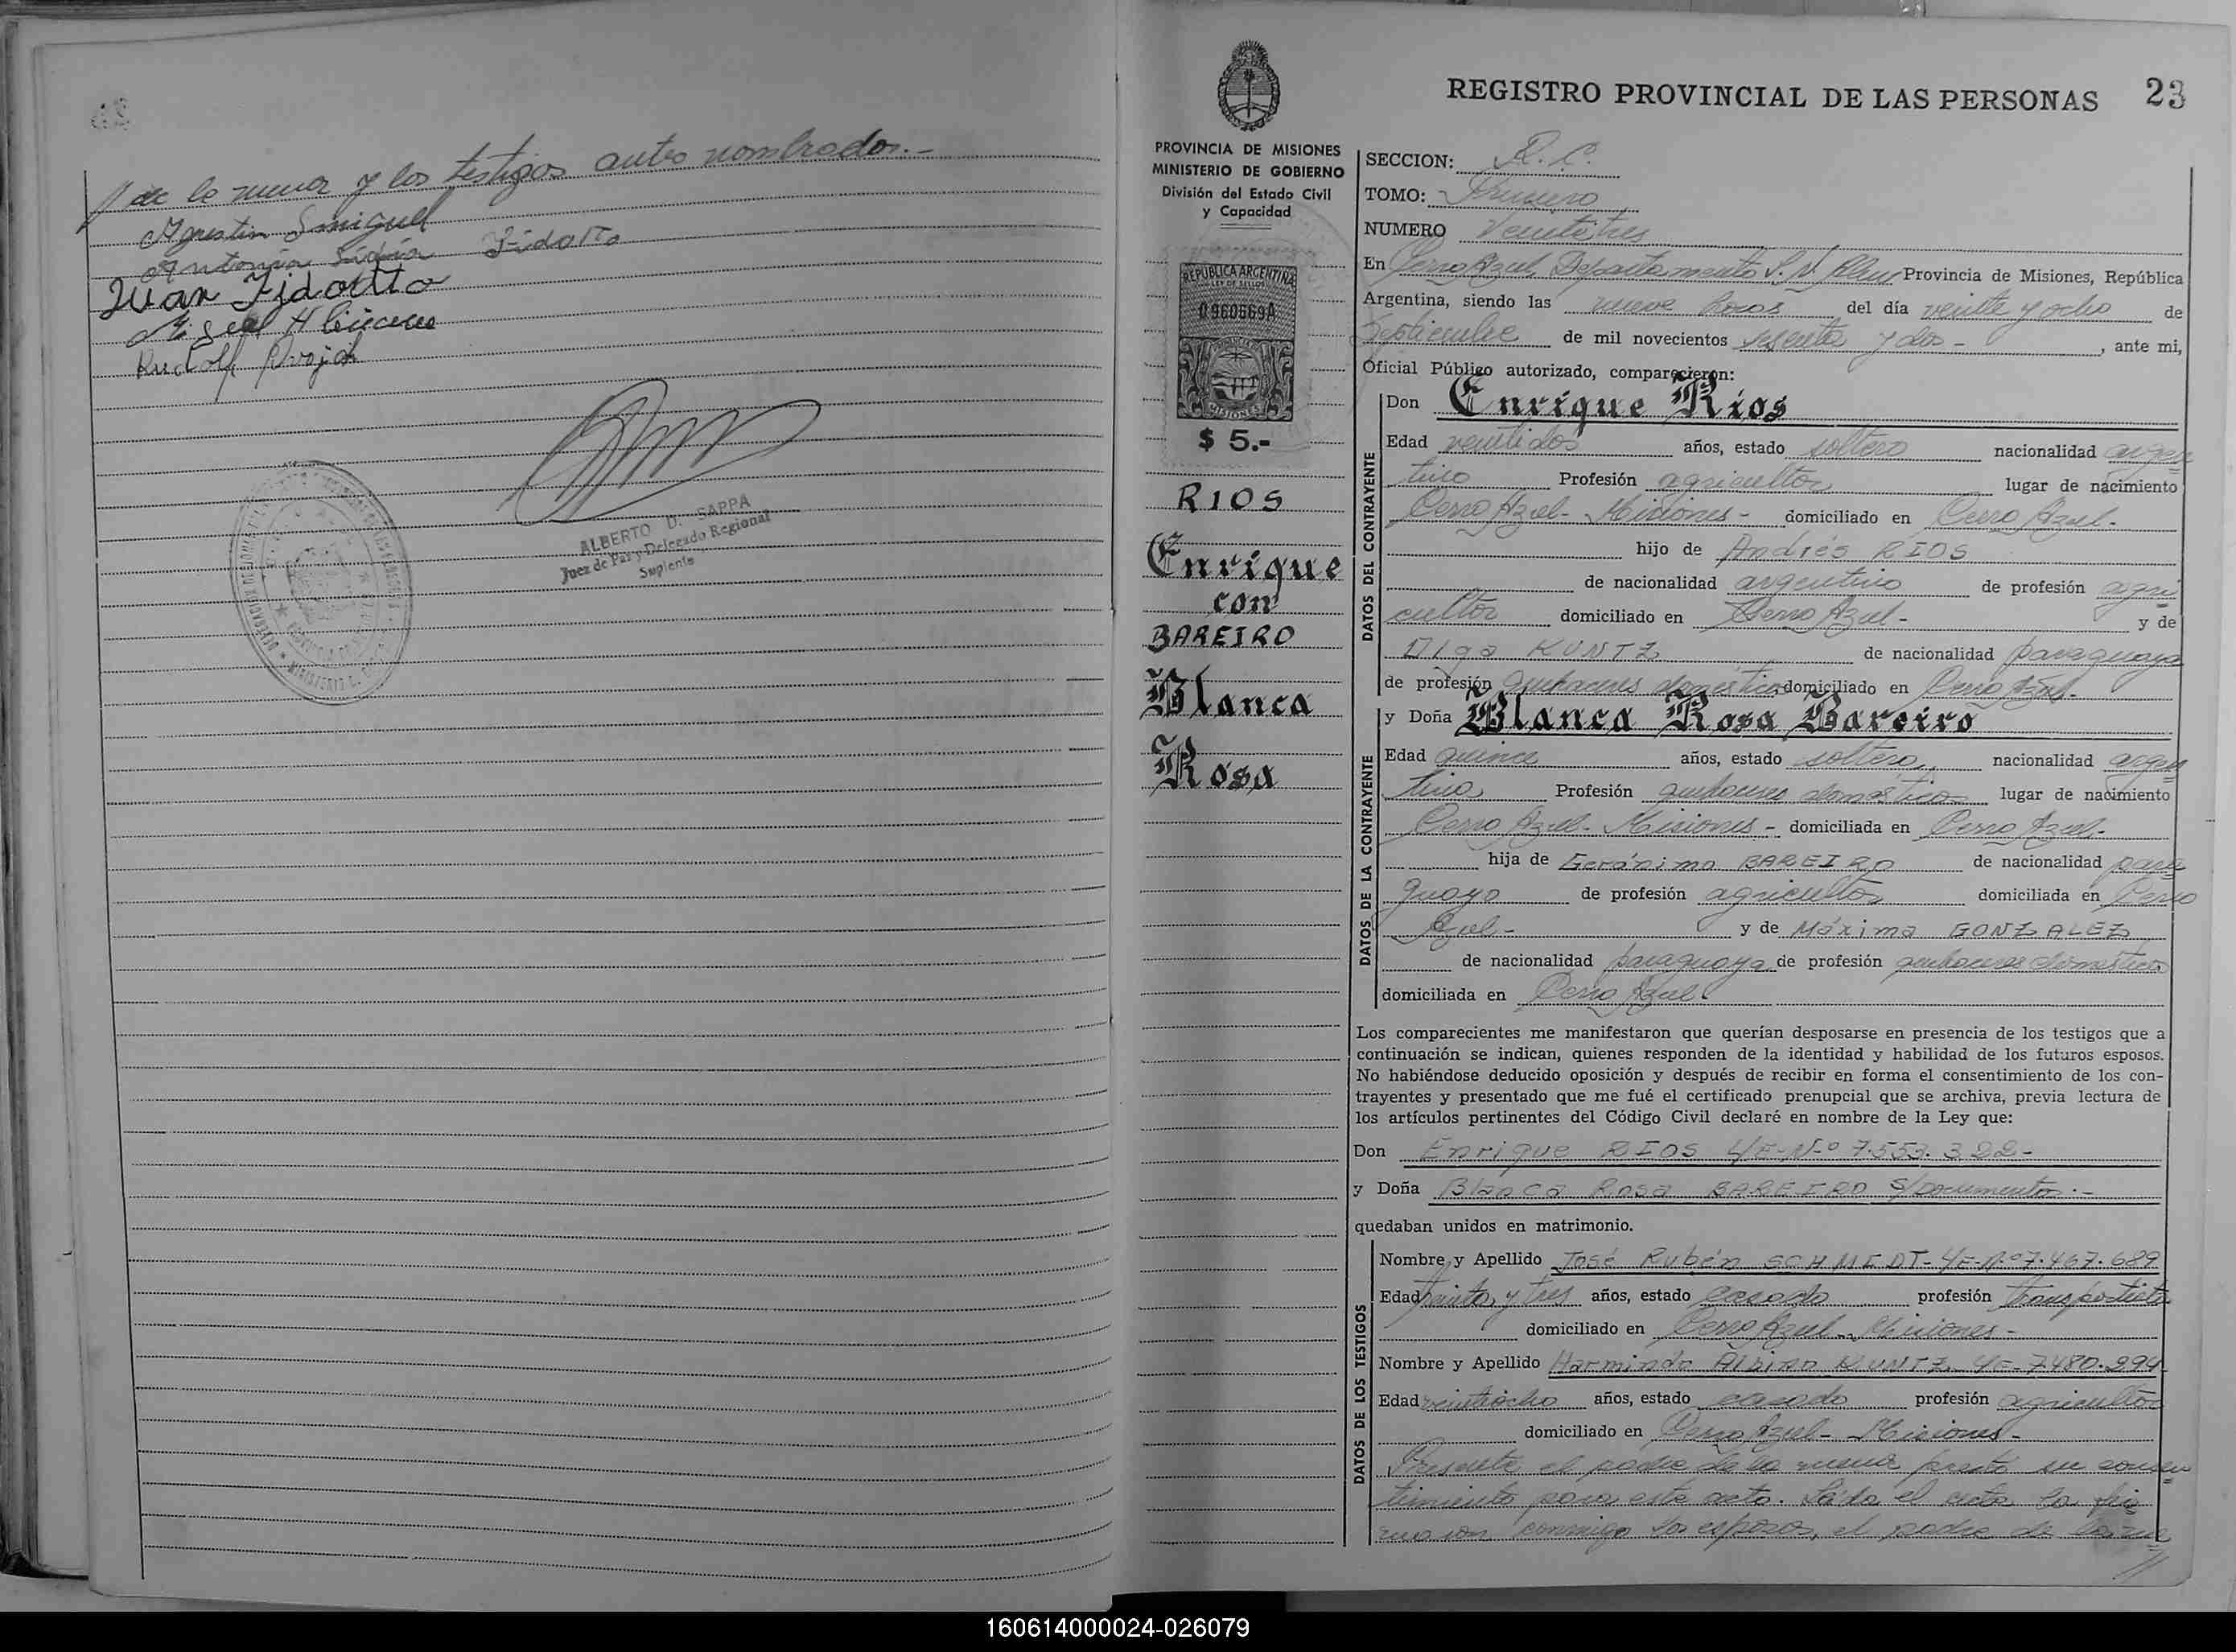 // de la menor y los testigos antes nombrados.-
Agustin Smiguel
Antonia Lidia Fidorto
Juan Fidorto
Rudolf
ALBERTO D. SAPPA
Juez de Paz y Delegado Regional
Suplente
REGISTRO PROVINCIAL DE LAS PERSONAS 23
PROVINCIA DE MISIONES
MINISTERIO DE GOBIERNO
División del Estado Civil
y Capacidad
REPUBLICA ARGENTINA
LEY DE SELLOS
0960569A
MISIONES
$ 5.-
RIOS
Enrique
con
BAREIRO
Blanca
Rosa
SECCION: R. C.
TOMO: Primero
NUMERO Veintitres
En Cerro Azul, Departamento L. N. Alem Provincia de Misiones, República
Argentina, siendo las nueve horas del día veinte y ocho de
Septiembre de mil novecientos sesenta y dos - , ante mi,
Oficial Público autorizado, comparecieron:
DATOS DEL CONTRAYENTE
Don Enrique Rios
Edad veintidos años, estado soltero nacionalidad argen
tino Profesión agricultor lugar de nacimiento
Cerro Azul - Misiones - domiciliado en Cerro Azul.-
hijo de Andrés RIOS
de nacionalidad argentino de profesión agri
cultor domiciliado en Cerro Azul - y de
Olga KUNTZ de nacionalidad paraguaya
de profesión quehaceres domésticos domiciliado en Cerro Azul.-
DATOS DE LA CONTRAYENTE
y Doña Blanca Rosa Bareiro
Edad quince años, estado soltera nacionalidad argen
tina Profesión quehaceres domésticos lugar de nacimiento
Cerro Azul - Misiones - domiciliada en Cerro Azul.-
hija de Gerónimo BAREIRO de nacionalidad para
guayo de profesión agricultor domiciliada en Cerro
Azul - y de Máxima GONZALEZ
de nacionalidad paraguaya de profesión quehaceres domésticos
domiciliada en Cerro Azul
Los comparecientes me manifestaron que querían desposarse en presencia de los testigos que a
continuación se indican, quienes responden de la identidad y habilidad de los futuros esposos.
No habiéndose deducido oposición y después de recibir en forma el consentimiento de los con-
trayentes y presentado que me fué el certificado prenupcial que se archiva, previa lectura de
los artículos pertinentes del Código Civil declaré en nombre de la Ley que:
Don Enrique RIOS L/E-Nº 7.553.322-
y Doña Blanca Rosa BAREIRO s/Documentos.-
quedaban unidos en matrimonio.
DATOS DE LOS TESTIGOS
Nombre y Apellido José Rubén SCHMIDT- L/E-Nº 7.467.689
Edad treinta y tres años, estado casado profesión transportista
domiciliado en Cerro Azul - Misiones -
Nombre y Apellido Harmindo Albino KUNTZ - L/E- 7480.294
Edad veintiocho años, estado casado profesión agricultor
domiciliado en Cerro Azul - Misiones -
Presente el padre de la menor presta su consen
timiento para este acto. Leída el acta la fir
maron conmigo los esposos, el padre de la
//
160614000024-026079